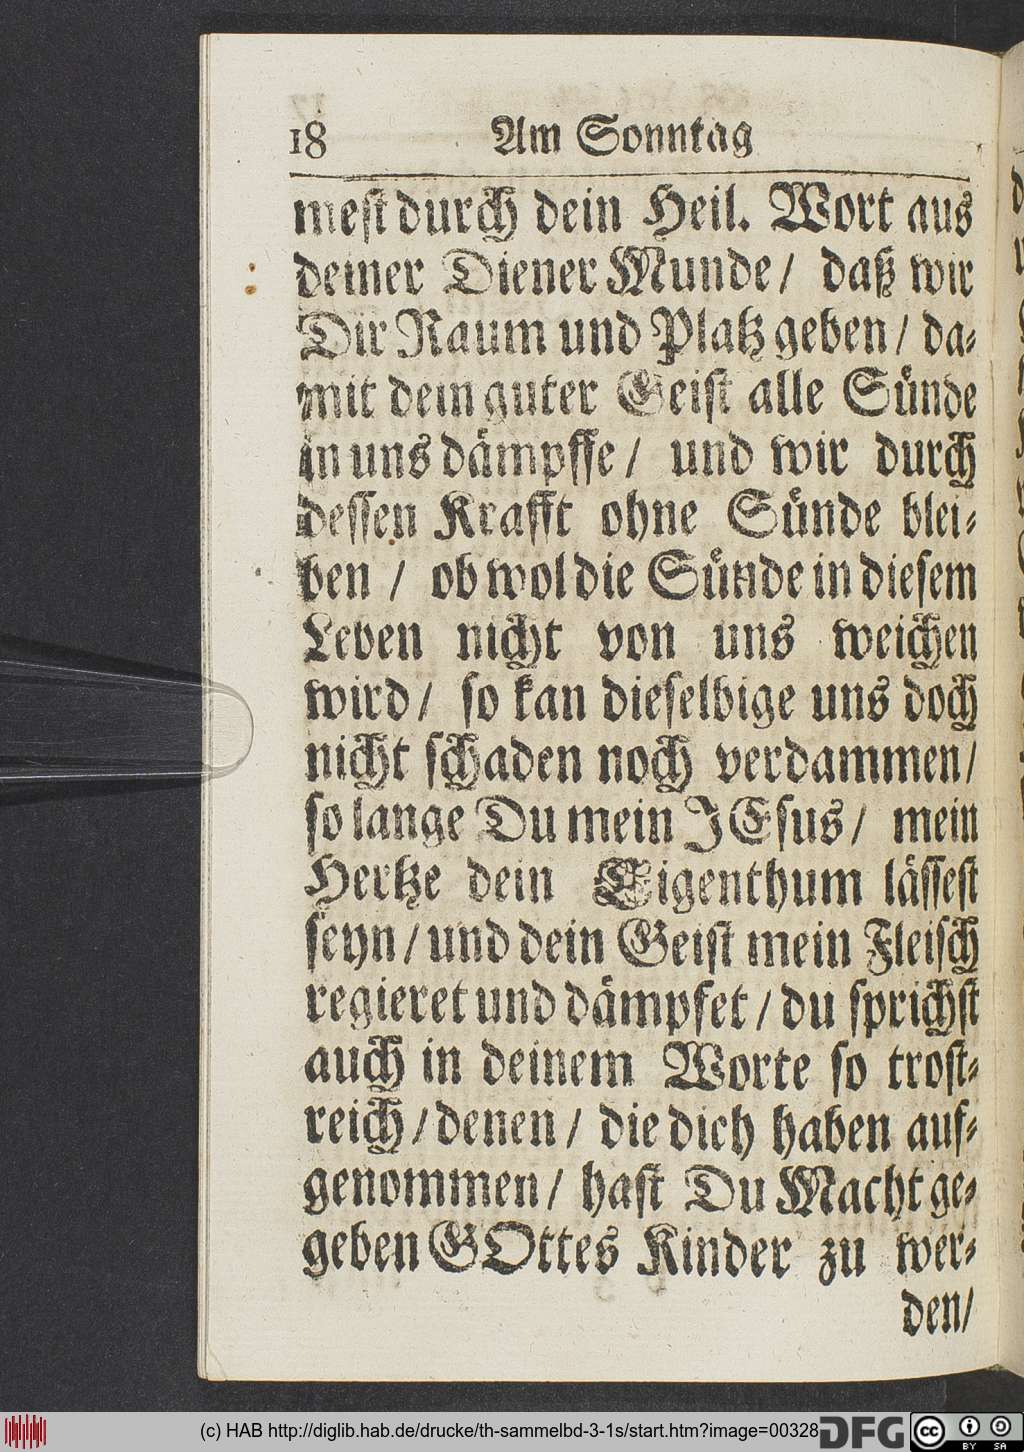 18 Am Sonntag
mest durch dein Heil. Wort aus
deiner Diener Munde / daß wir
Dir Raum und Platz geben / da-
mit dein guter Geist alle Sünde
in uns dämpffe / und wir durch
dessen Krafft ohne Sünde blei-
ben / ob wol die Sünde in diesem
Leben nicht von uns weichen
wird / so kan dieselbige uns doch
nicht schaden noch verdammen /
so lange Du mein JEsus / mein
Hertze dein Eigenthum lässest
seyn / und dein Geist mein Fleisch
regieret und dämpfet / du sprichst
auch in deinem Worte so trost-
reich / denen / die dich haben auf-
genommen / hast Du Macht ge-
geben GOttes Kinder zu wer-
den /
(c) HAB http://diglib.hab.de/drucke/th-sammelbd-3-1s/start.htm?image=00328
DFG
cc BY SA